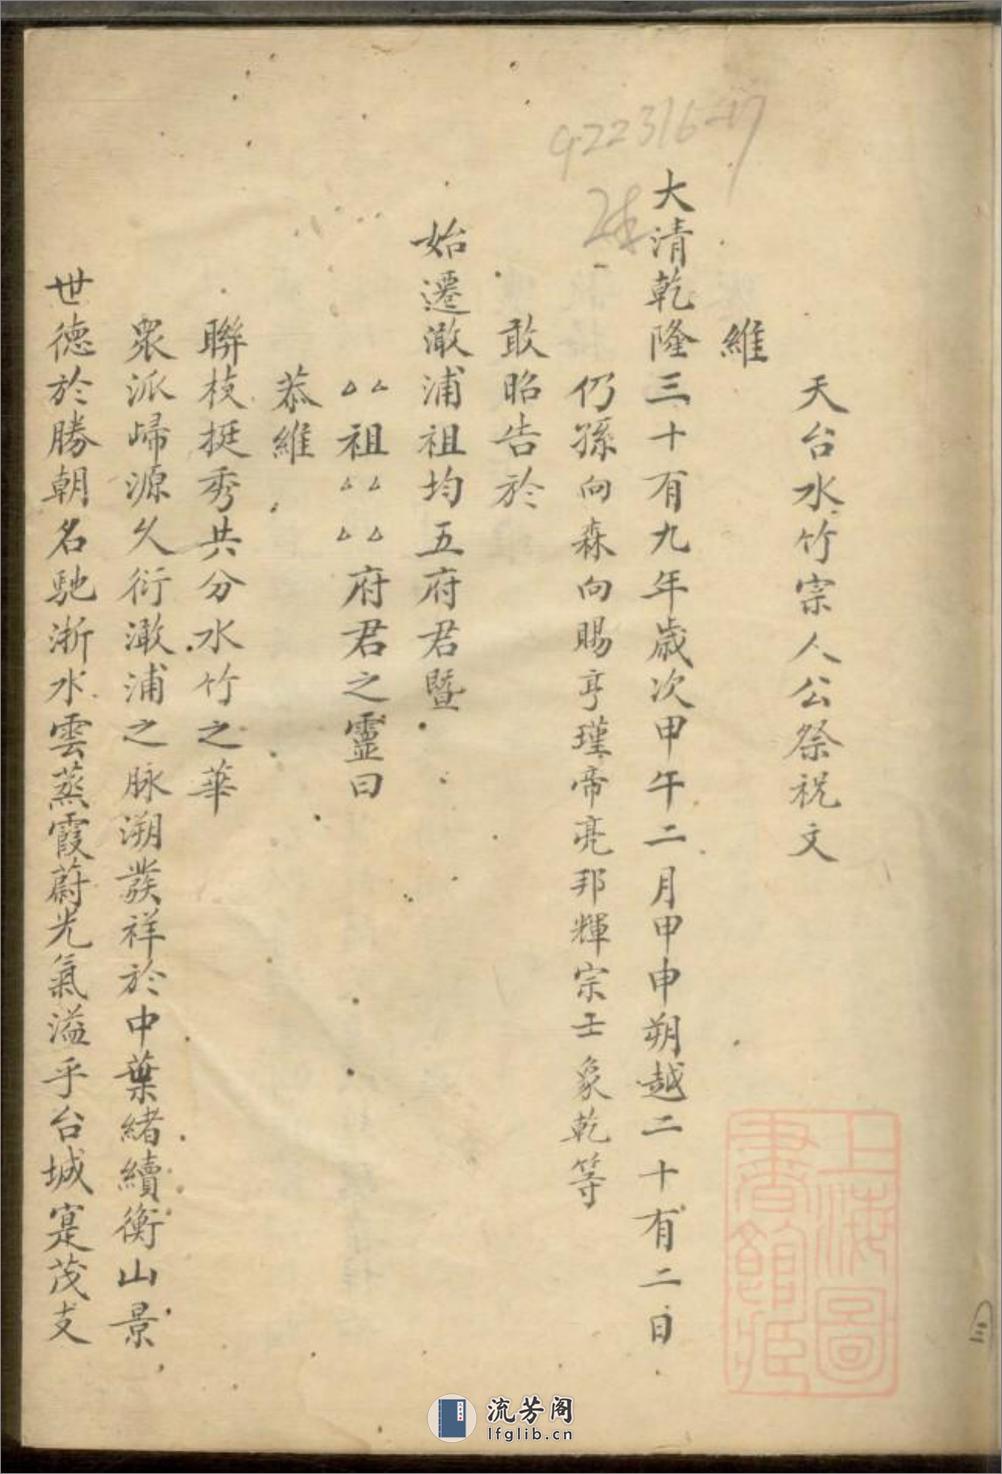 922316-17
天台水竹宗人公祭祝文
維
大清乾隆三十有九年歲次甲午二月甲申朔越二十有二日
仍孫向森向賜亨瑾帝亮邦輝宗士象乾等
敢昭告於
始遷澉浦祖均五府君暨
厶厶祖厶厶厶厶府君之靈曰
恭維
聯枝挺秀共分水竹之華
衆派歸源久衍澉浦之脉溯發祥於中葉緒續衡山景
世德於勝朝名馳浙水雲蒸霞蔚光氣溢乎台城寔茂支
上海圖書館藏
三
流芳阁
lfglib.cn